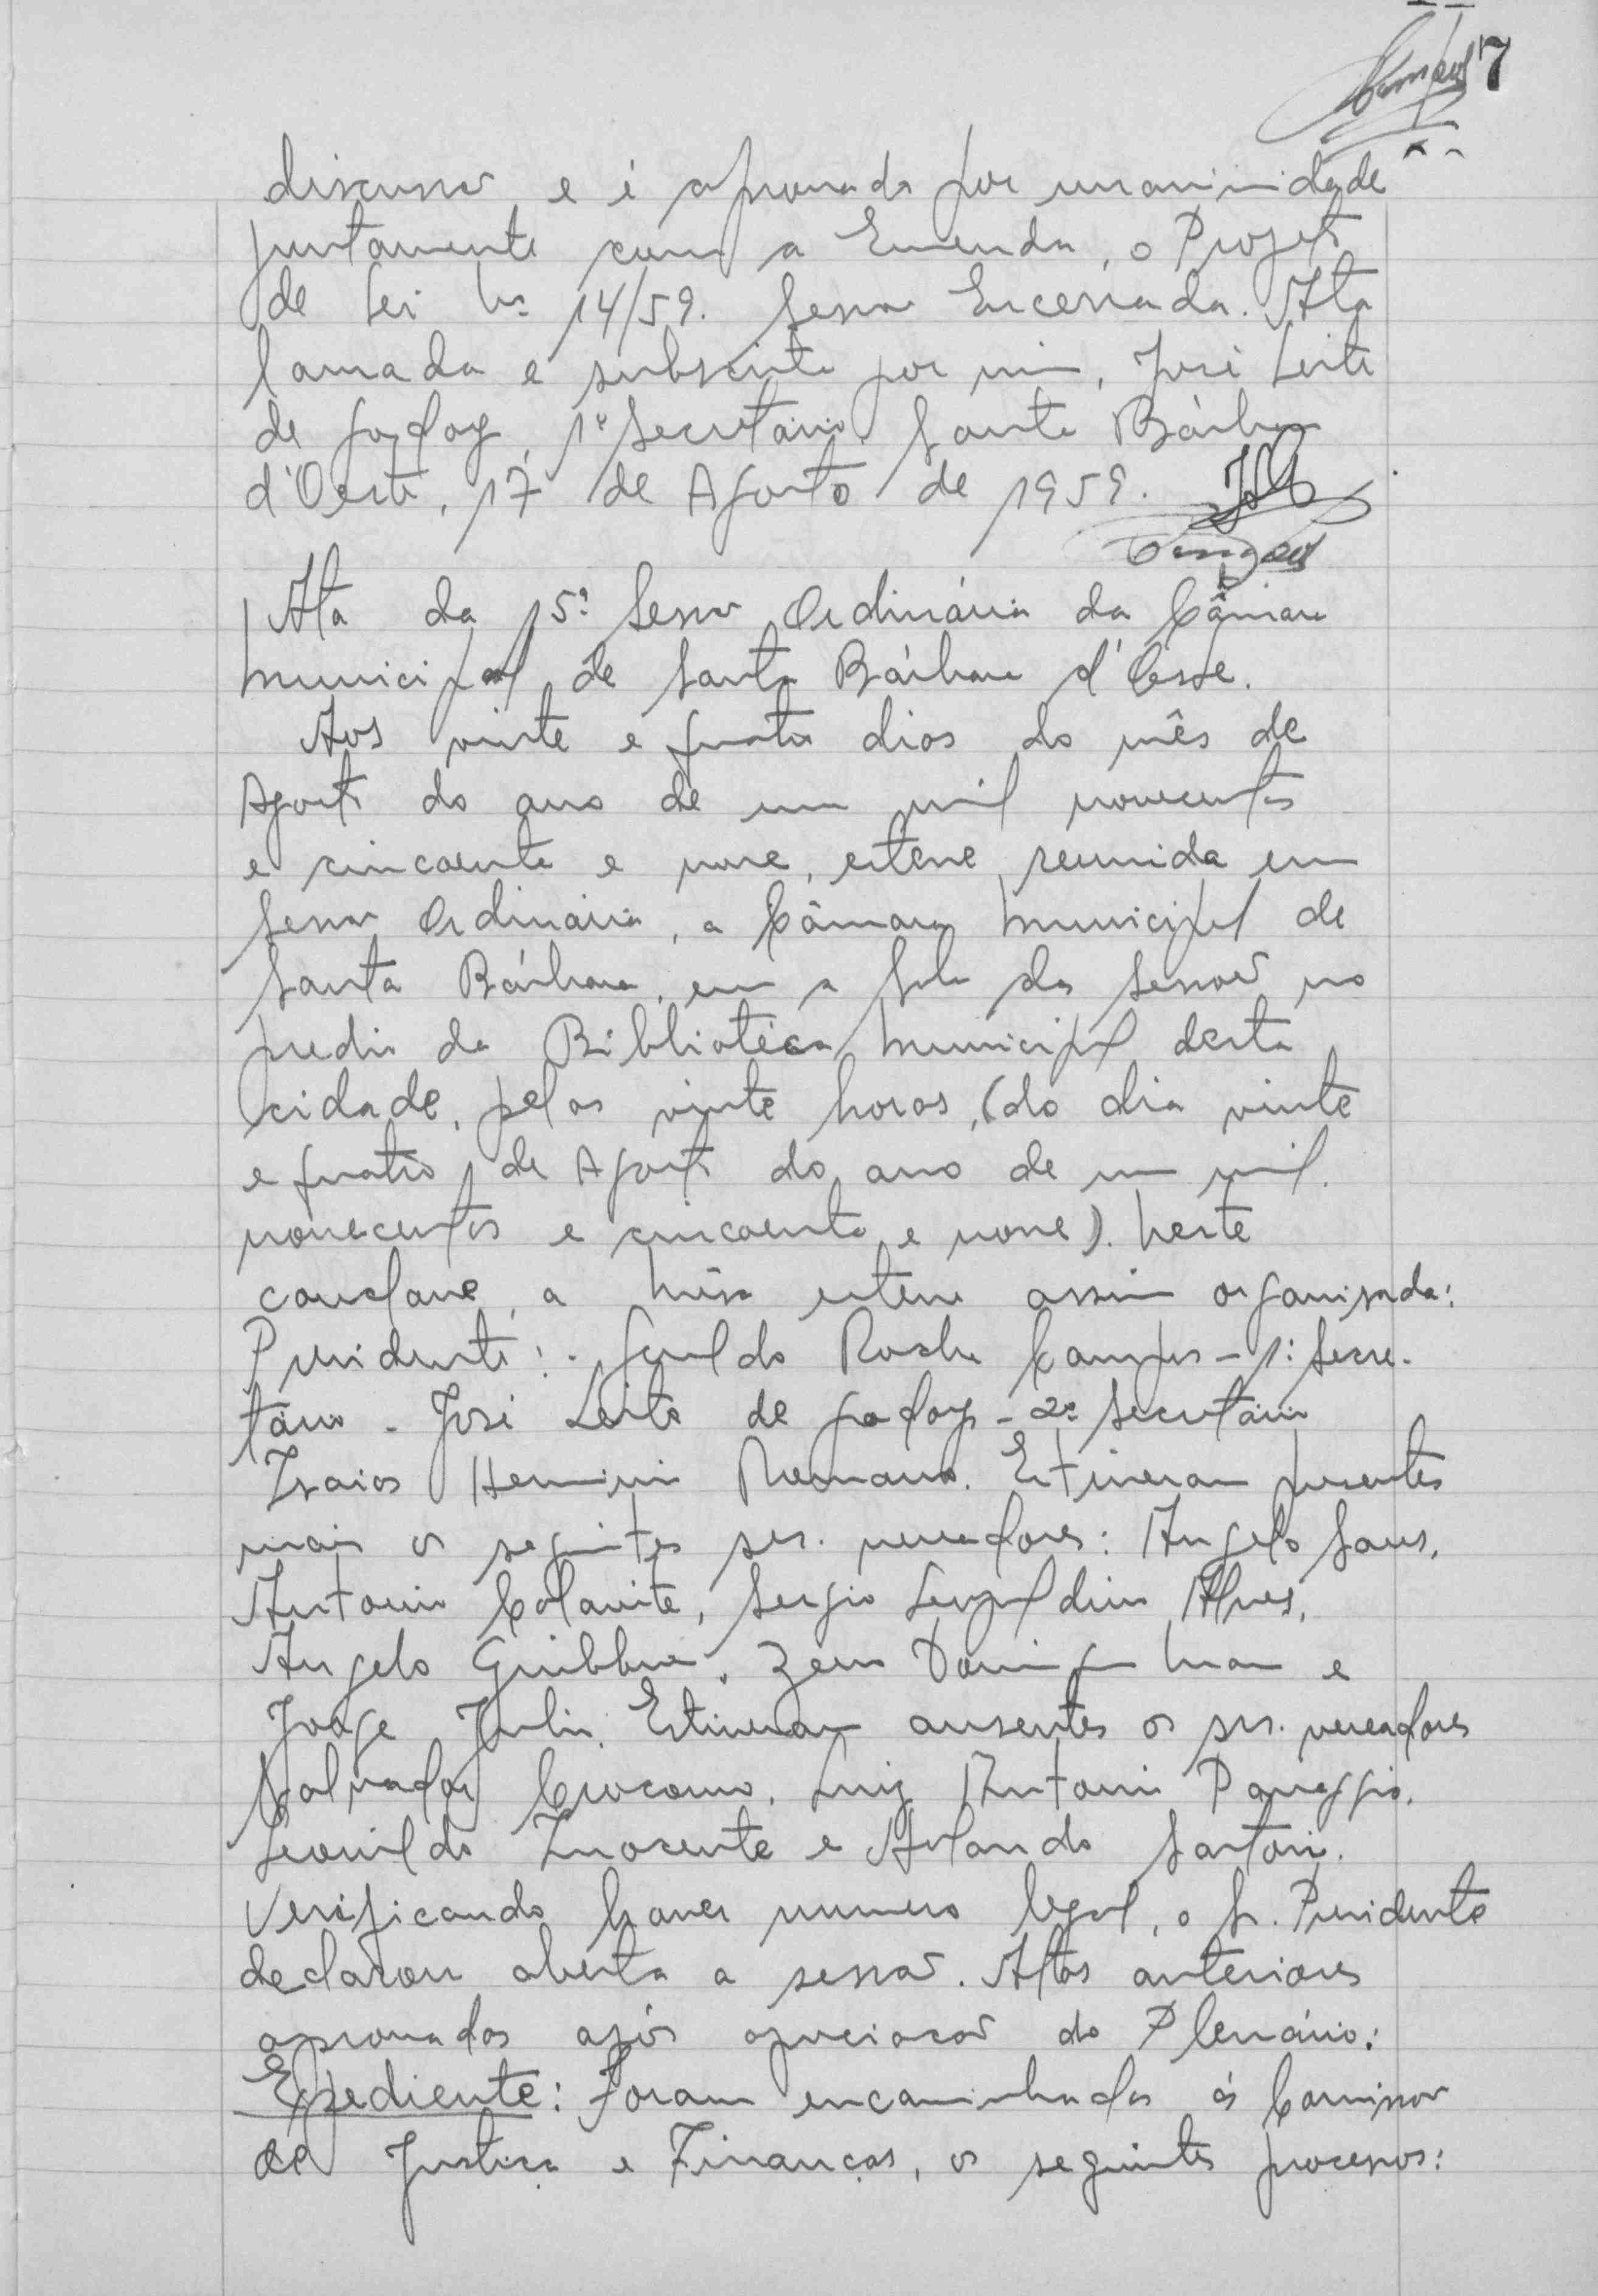 7
discussão e é aprovado por unanimidade
juntamente com a Emenda, o Projeto
de Lei Nº 14/59. Sessão Encerrada. Ata
lavrada e subscrita por mim, José Leite
de Godoy, 1º Secretário. Santa Bárbara
d'Oeste, 17 de Agosto de 1959.
Ata da 15ª Sessão Ordinária da Câmara
Municipal de Santa Bárbara d'Oeste.
Aos vinte e quatro dias do mês de
Agosto do ano de um mil novecentos
e cincoenta e nove, esteve reunida em
Sessão Ordinária, a Câmara Municipal de
Santa Bárbara, em a Sala das Sessões no
predio da Biblioteca Municipal desta
cidade, pelas vinte horas, (do dia vinte
e quatro de Agosto do ano de um mil
novecentos e cincoenta e nove). Neste
conclave, a Mêsa esteve assim organisada:
Presidente:- Geraldo Rocha Campos - 1º Secre-
tário - José Leite de Godoy - 2º Secretário
Isaias Herminio Romano. Estiveram presentes
mais os seguintes srs. vereadores: Angelo Sans,
Antonio Colavite, Sergio Leopoldino Alves,
Angelo Giubbina, Zeno Domingos Maia e
Jorge Julio. Estiveram ausentes os srs. vereadores
Salvador Crocomo, Luiz Antonio Panaggio,
Leonildo Inocente e Orlando Sartori.
Verificando haver numero legal, o Sr. Presidente
declarou aberta a sessão. Atas anteriores
aprovadas após apreciação do Plenário:
Expediente: Foram encaminhados ás Comissões
de Justiça e Finanças, os seguintes processos: